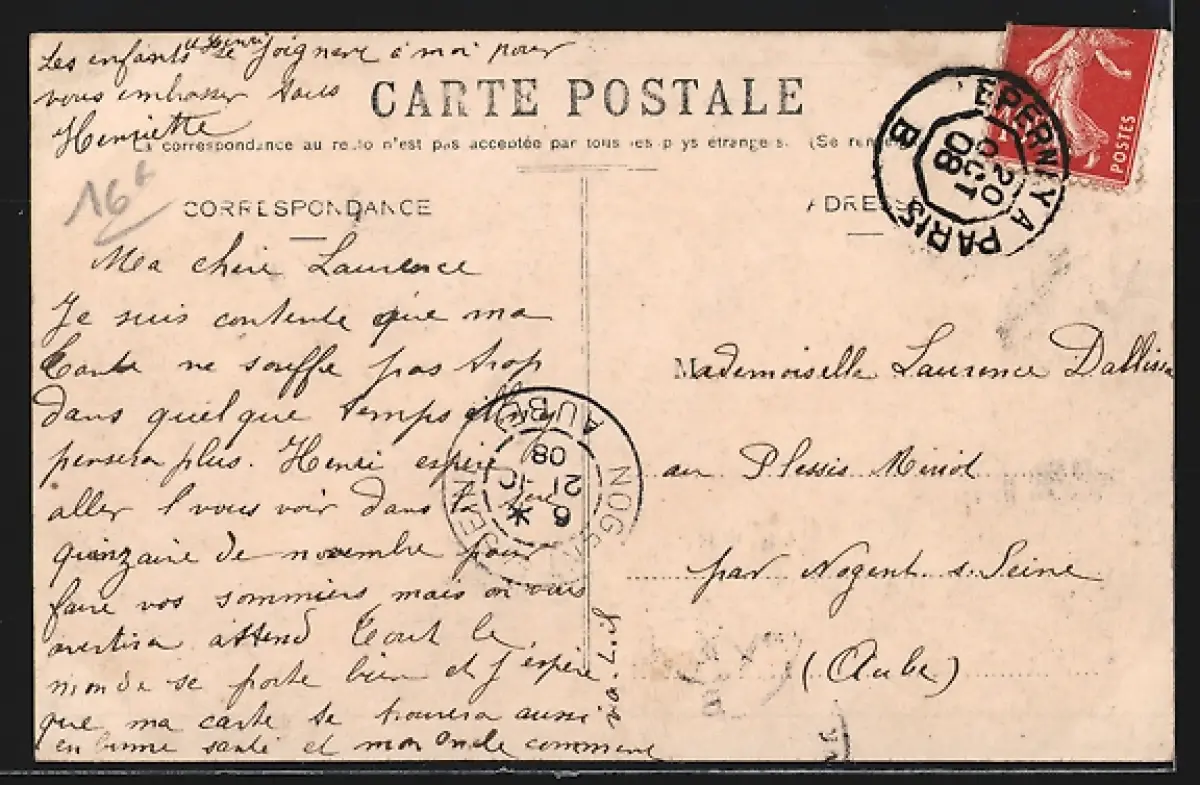 Les enfants et Henri se joignent à moi pour
vous embrasser tous
Henriette
CARTE POSTALE
La correspondance au recto n'est pas acceptée par tous les pays étrangers. (Se ren
16
CORRESPONDANCE
ADRESSE
Ma chère Laurence
Je suis contente que ma
tante ne souffre pas trop
dans quelque temps
pensera plus. Henri espère
aller vous voir dans la
quinzaine de novembre pour
faire vos sommiers mais on vous
avertira attend Tout le
monde se porte bien et j'espère
que ma carte te trouvera aussi
en bonne santé et mon Oncle comment
Mademoiselle Laurence Dallisson
au Plessis Mériot
par Nogent s. Seine
(Aube)
EPERNAY A PARIS
B
20
OCT
08
POSTES
NOGENT
AUBE
6 *
21 -10
08